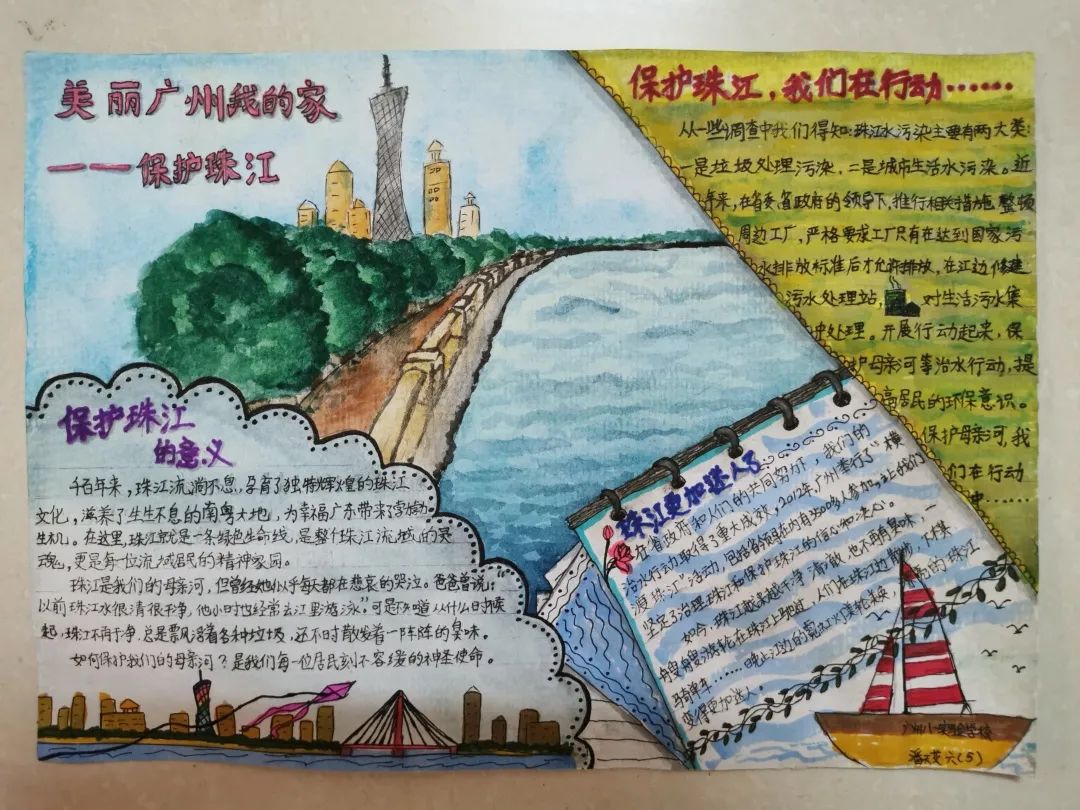 美丽广州我的家
——保护珠江
保护珠江，我们在行动……
从一些调查中我们得知：珠江水污染主要有两大类：
一是垃圾处理污染，二是城市生活水污染。近
年来，在省委、省政府的领导下，推行相关措施，整顿
周边工厂，严格要求工厂只有在达到国家污
水排放标准后才允许排放，在江边修建
污水处理站，对生活污水集
中处理。开展行动起来，保
护母亲河等治水行动，提
高居民的环保意识。
保护母亲河，我
们在行动
中……
保护珠江
的意义
千百年来，珠江流淌不息，孕育了独特辉煌的珠江
文化，滋养了生生不息的南粤大地，为幸福广东带来了蓬勃
生机。在这里，珠江就是一条绿色生命线，是整个珠江流域的灵
魂，更是每一位流域居民的精神家园。
珠江是我们的母亲河，但曾经她几乎每天都在悲哀的哭泣。爸爸曾说，
以前珠江水很清很干净，他小时也经常去江里游泳。可是不知道从什么时候
起，珠江不再干净，总是漂浮着各种垃圾，还不时散发着一阵阵的臭味。
如何保护我们的母亲河？是我们每一位居民刻不容缓的神圣使命。
珠江更加迷人了
在省政府和人们的共同努力下，我们的
治水行动取得了重大成效，2012年广州举行了“横
渡珠江”活动，包括省领导在内有3500多人参加，
坚定了治理珠江和保护珠江的信心和决心。
如今，珠江越来越干净、清澈，也不再有臭味，一
艘艘游轮在珠江上驶过，人们在珠江边散步、下棋
骑单车……晚上江边的霓虹灯
变得更加迷人。
广州小学实验学校
六(5)